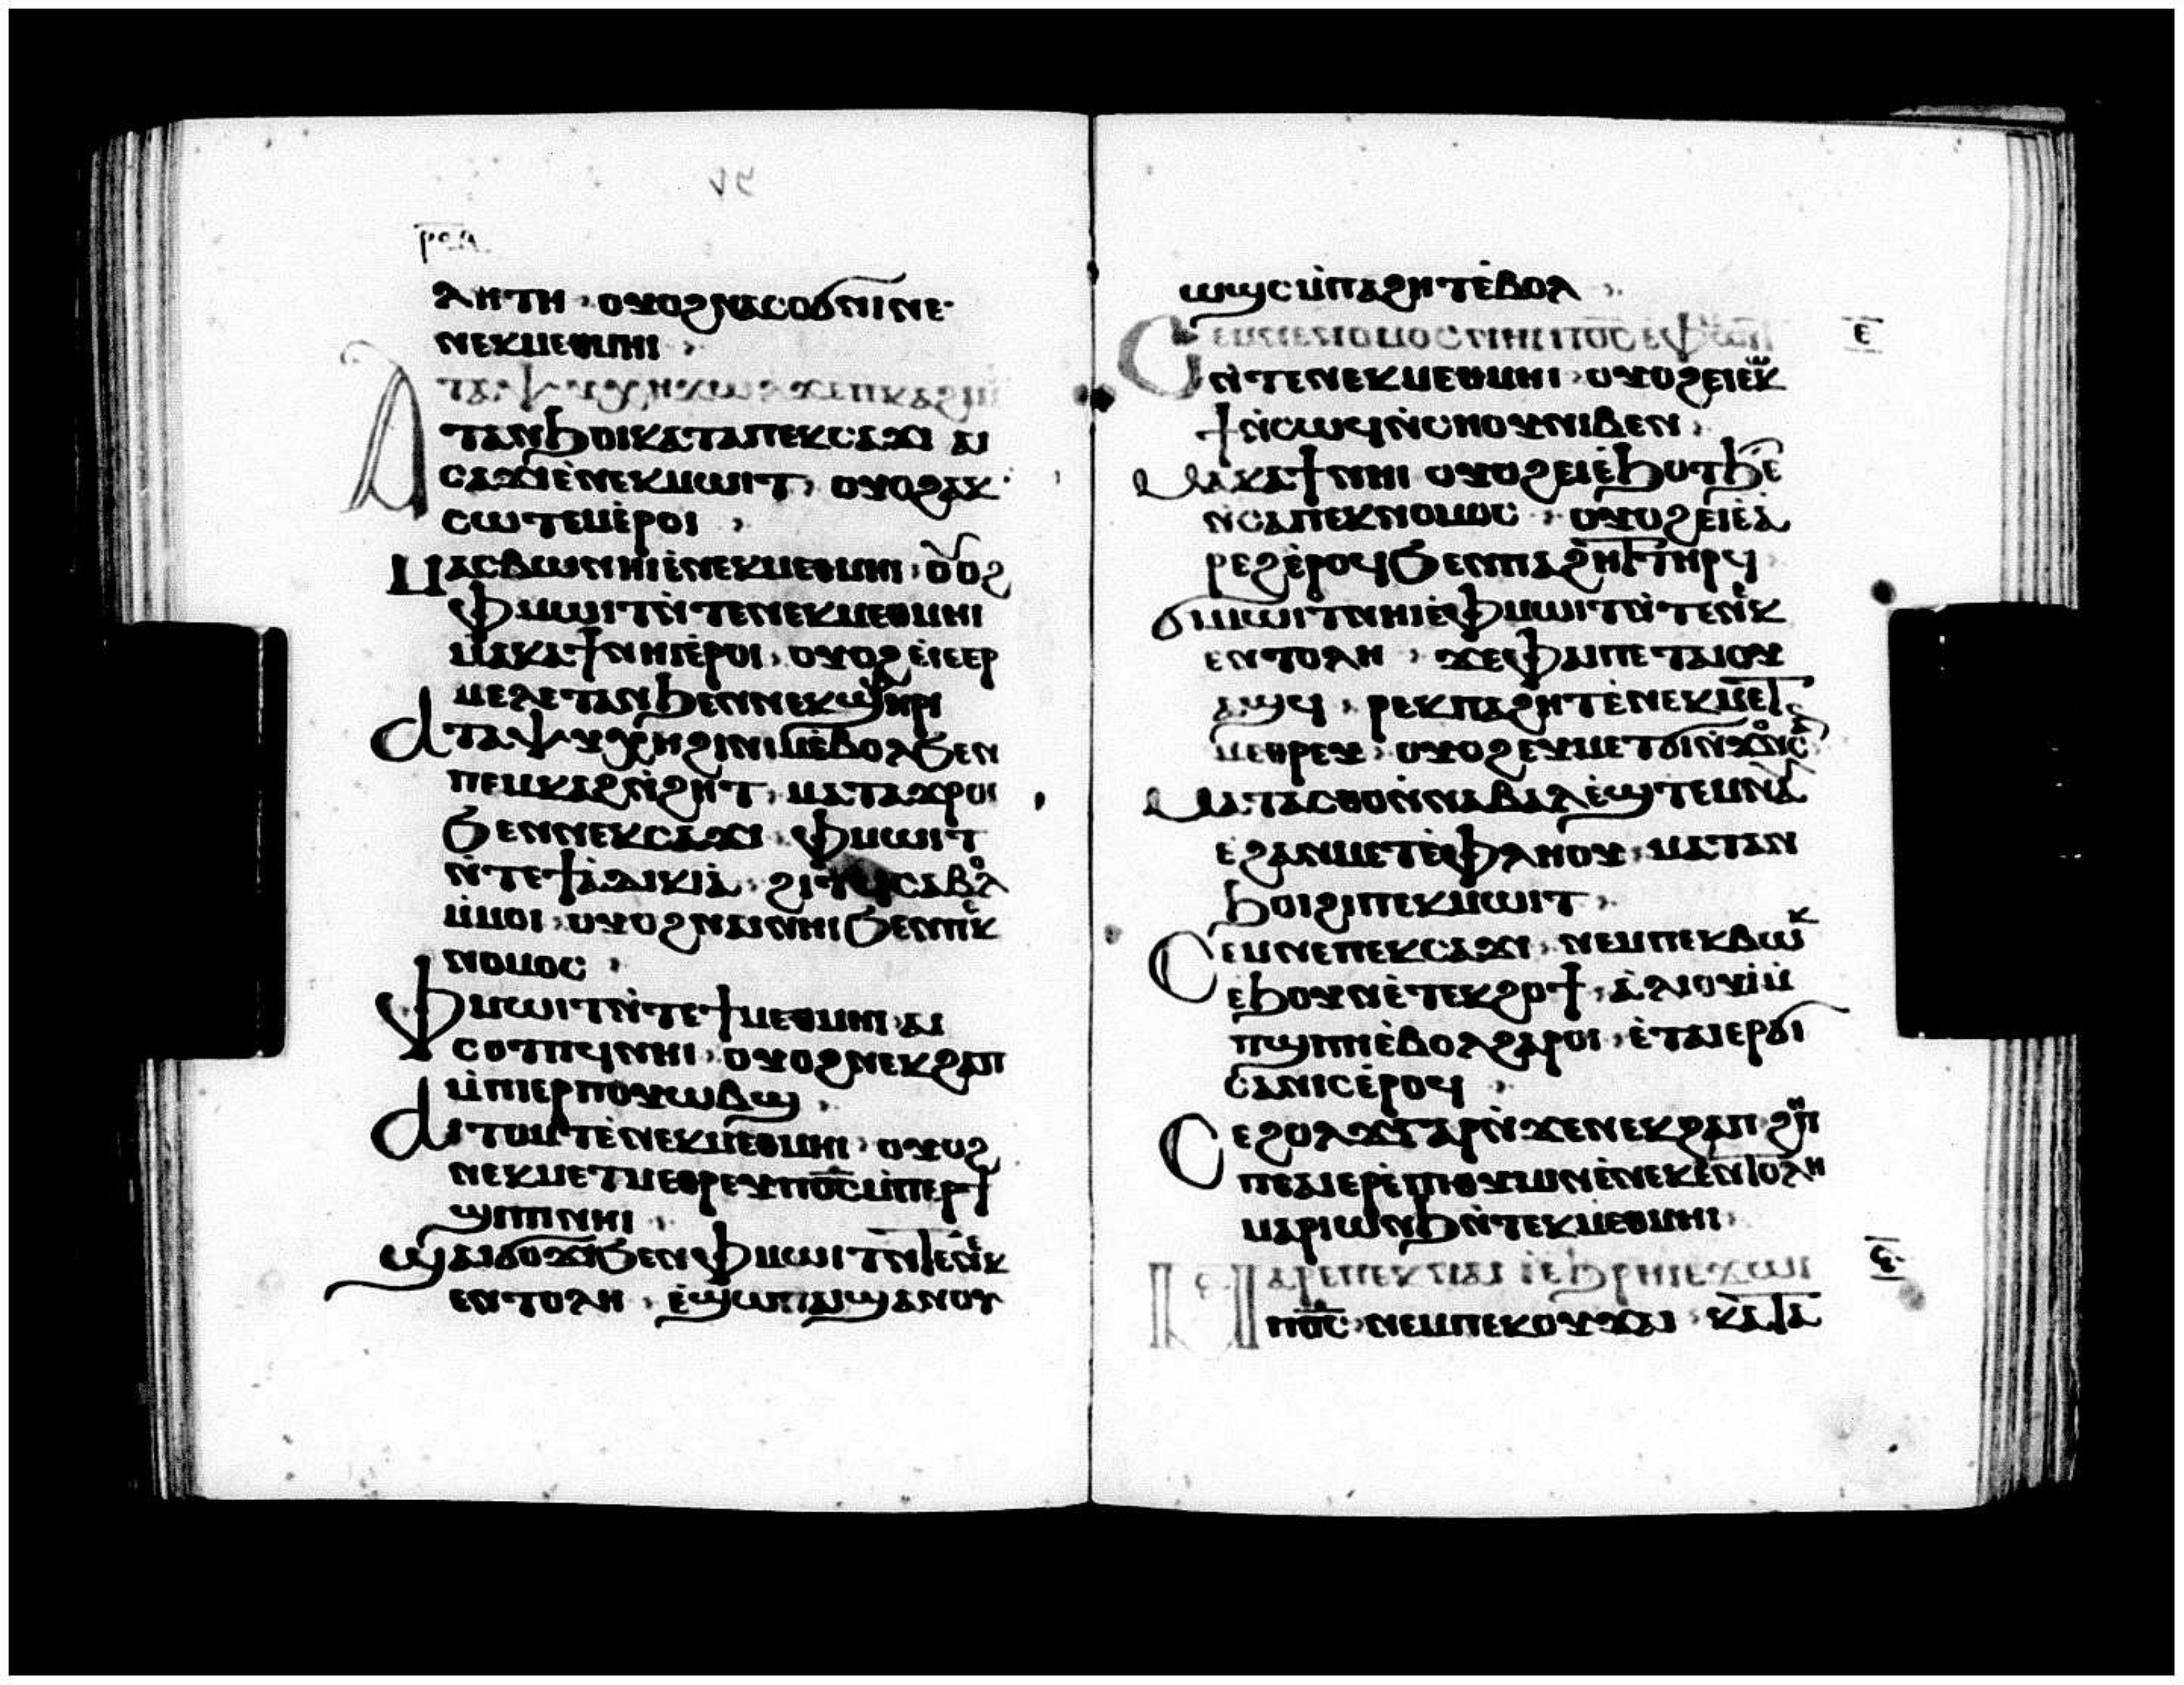 ⲣⲟⲁ
ⲗⲏⲧⲏ · ⲟⲩⲟϩ ⲛⲁⲥⲟϭⲛⲓ ⲛⲉ
ⲛⲉⲕⲙⲉⲑⲙⲏⲓ ·
ⲁⲧⲁⲯⲩⲭⲏ ⲭⲱ ϫⲉⲡⲕⲁϩⲓ ⲙ
ⲧⲁⲛϧⲟⲓ ⲕⲁⲧⲁ ⲡⲉⲕⲥⲁϫⲓ ⲁⲓ
ⲥⲁϫⲓ ⲉ̀ⲛⲉⲕⲙⲱⲓⲧ · ⲟⲩⲟϩ ⲁⲕ
ⲥⲱⲧⲉⲙ ⲉ̀ⲣⲟⲓ ·
ⲙⲁⲥⲃⲱ ⲛⲏⲓ ⲉ̀ⲛⲉⲕⲙⲉⲑⲙⲏⲓ · ⲟⲩⲟϩ
ⲫⲙⲱⲓⲧ ⲛ̀ⲧⲉ ⲛⲉⲕⲙⲉⲑⲙⲏⲓ
ⲙⲁⲕⲁϯ ⲛⲏⲓ ⲉ̀ⲣⲟⲓ · ⲟⲩⲟϩ ⲉ̀ⲓⲉⲉⲣ
ⲙⲉⲗⲉⲧⲁⲛ ϧⲉⲛ ⲛⲉⲕϣⲫⲏⲣⲓ
ⲁⲧⲁⲯⲩⲭⲏ ϩⲓⲛⲓⲙ ⲉ̀ⲃⲟⲗ ϧⲉⲛ
ⲡⲉⲙⲕⲁϩ ⲛ̀ϩⲏⲧ · ⲙⲁⲧⲁϫⲣⲟⲓ
ϧⲉⲛ ⲛⲉⲕⲥⲁϫⲓ · ⲫⲙⲱⲓⲧ
ⲛ̀ⲧⲉ ϯⲁ̀ⲇⲓⲕⲓⲁ̀ · ϩⲓⲧϥ ⲥⲁⲃⲟⲗ
ⲙ̀ⲙⲟⲓ · ⲟⲩⲟϩ ⲛⲁⲓ ⲛⲏⲓ ϧⲉⲛ ⲡⲉⲕ
ⲛⲟⲙⲟⲥ ·
ⲫⲙⲱⲓⲧ ⲛ̀ⲧⲉ ϯⲙⲉⲑⲙⲏⲓ ⲁⲓ
ⲥⲟⲧⲡϥ ⲛⲏⲓ · ⲟⲩⲟϩ ⲛⲉⲕϩⲁⲡ
ⲙ̀ⲡⲓⲉⲣⲡⲟⲩⲱⲃϣ ·
ⲁⲓⲧⲟⲙⲧ ⲉ̀ⲛⲉⲕⲙⲉⲑⲙⲏⲓ · ⲟⲩⲟϩ
ⲛⲉⲕⲙⲉⲧⲙⲉⲑⲣⲉⲩ ⲡⲟ̅ⲥ̅ ⲙ̀ⲡⲉⲣϯ
ϣⲓⲡⲓ ⲛⲏⲓ ·
ϣⲁⲓϭⲟϫⲓ ϧⲉⲛ ⲫⲙⲱⲓⲧ ⲛ̀ⲧⲉ ⲛⲉⲕ
ⲉⲛⲧⲟⲗⲏ · ⲉ̀ϣⲱⲡ ⲁⲓϣⲁⲛⲟⲩ
ⲱϣⲥ ⲙ̀ⲡⲁϩⲏⲧ ⲉ̀ⲃⲟⲗ ·
ⲥⲉⲙⲛⲉⲛⲟⲙⲟⲥ ⲛⲏⲓ ⲡⲟ̅ⲥ̅ ⲉⲫⲙⲱⲓⲧ
ⲉ̅
ⲛ̀ⲧⲉ ⲛⲉⲕⲙⲉⲑⲙⲏⲓ · ⲟⲩⲟϩ ⲉⲓⲉ̀ⲕⲱ
ϯ ⲛ̀ⲥⲱϥ ⲛ̀ⲥⲏⲟⲩ ⲛⲓⲃⲉⲛ ·
ⲙⲁⲕⲁϯ ⲛⲏⲓ ⲟⲩⲟϩ ⲉⲓⲉ̀ϧⲟⲧϧⲉⲧ
ⲛⲥⲁ ⲡⲉⲕⲛⲟⲙⲟⲥ · ⲟⲩⲟϩ ⲉⲓⲉ̀ⲁ̀
ⲣⲉϩ ⲉ̀ⲣⲟϥ ϧⲉⲛ ⲡⲁϩⲏⲧ ⲧⲏⲣϥ
ϭⲓⲙⲱⲓⲧ ⲛⲏⲓ ⲉ̀ⲫⲙⲱⲓⲧ ⲛ̀ⲧⲉ ⲛⲉⲕ
ⲉⲛⲧⲟⲗⲏ · ϫⲉ ⲫⲁⲓ ⲡⲉⲧⲁⲓⲟⲩ
ⲁϣϥ · ⲣⲉⲕ ⲡⲁϩⲏⲧ ⲉ̀ⲛⲉⲕⲙⲉⲧ
ⲙⲉⲑⲣⲉⲩ · ⲟⲩⲟϩ ⲉⲩⲙⲉⲧϭⲓⲛϫⲟⲛⲥ ⲁⲛ
ⲙⲁⲧⲁⲥⲑⲟ ⲛ̀ⲛⲁⲃⲁⲗ ⲉ̀ϣⲧⲉⲙⲛⲁⲩ
ⲉϩⲁⲛⲙⲉⲧⲉ̀ⲫⲗⲏⲟⲩ · ⲙⲁⲧⲁⲛ
ϧⲟⲓ ϩⲓ ⲡⲉⲕⲙⲱⲓⲧ ·
ⲥⲉⲙⲛⲉ ⲡⲉⲕⲥⲁϫⲓ · ⲛⲉⲙ ⲡⲉⲕⲃⲱⲕ
ⲉϧⲟⲩⲛ ⲉ̀ⲧⲉⲕϩⲟϯ · ⲁ̀ⲗⲓⲟⲩⲓ̀ ⲙ̀
ⲡϣⲓⲡⲓ ⲉ̀ⲃⲟⲗϩⲁⲣⲟⲓ · ⲉ̀ⲧⲁⲓⲉⲣϭⲓ
ⲥⲁⲛⲓⲥ ⲉ̀ⲣⲟϥ ·
ⲥⲉϩⲟⲗϫ ⲅⲁⲣ ⲛ̀ϫⲉ ⲛⲉⲕϩⲁⲡ ϩⲏⲡ
ⲡⲉ ⲁⲓⲉⲣⲉ̀ⲡⲓⲑⲩⲙⲓⲛ ⲉ̀ⲛⲉⲕⲉⲛⲧⲟⲗⲏ
ⲙⲁⲣⲓⲱⲛϧ ⲛ̀ⲧⲉⲕⲙⲉⲑⲙⲏⲓ ·
ⲙⲁⲣⲉⲡⲉⲕⲛⲁⲓ ⲓ̀ ⲉ̀ϧⲣⲏⲓ ⲉϫⲱⲓ
ⲋ̅
ⲡⲟ̅ⲥ̅ · ⲛⲉⲙ ⲡⲉⲕⲟⲩϫⲁⲓ · ⲕⲁⲧⲁ